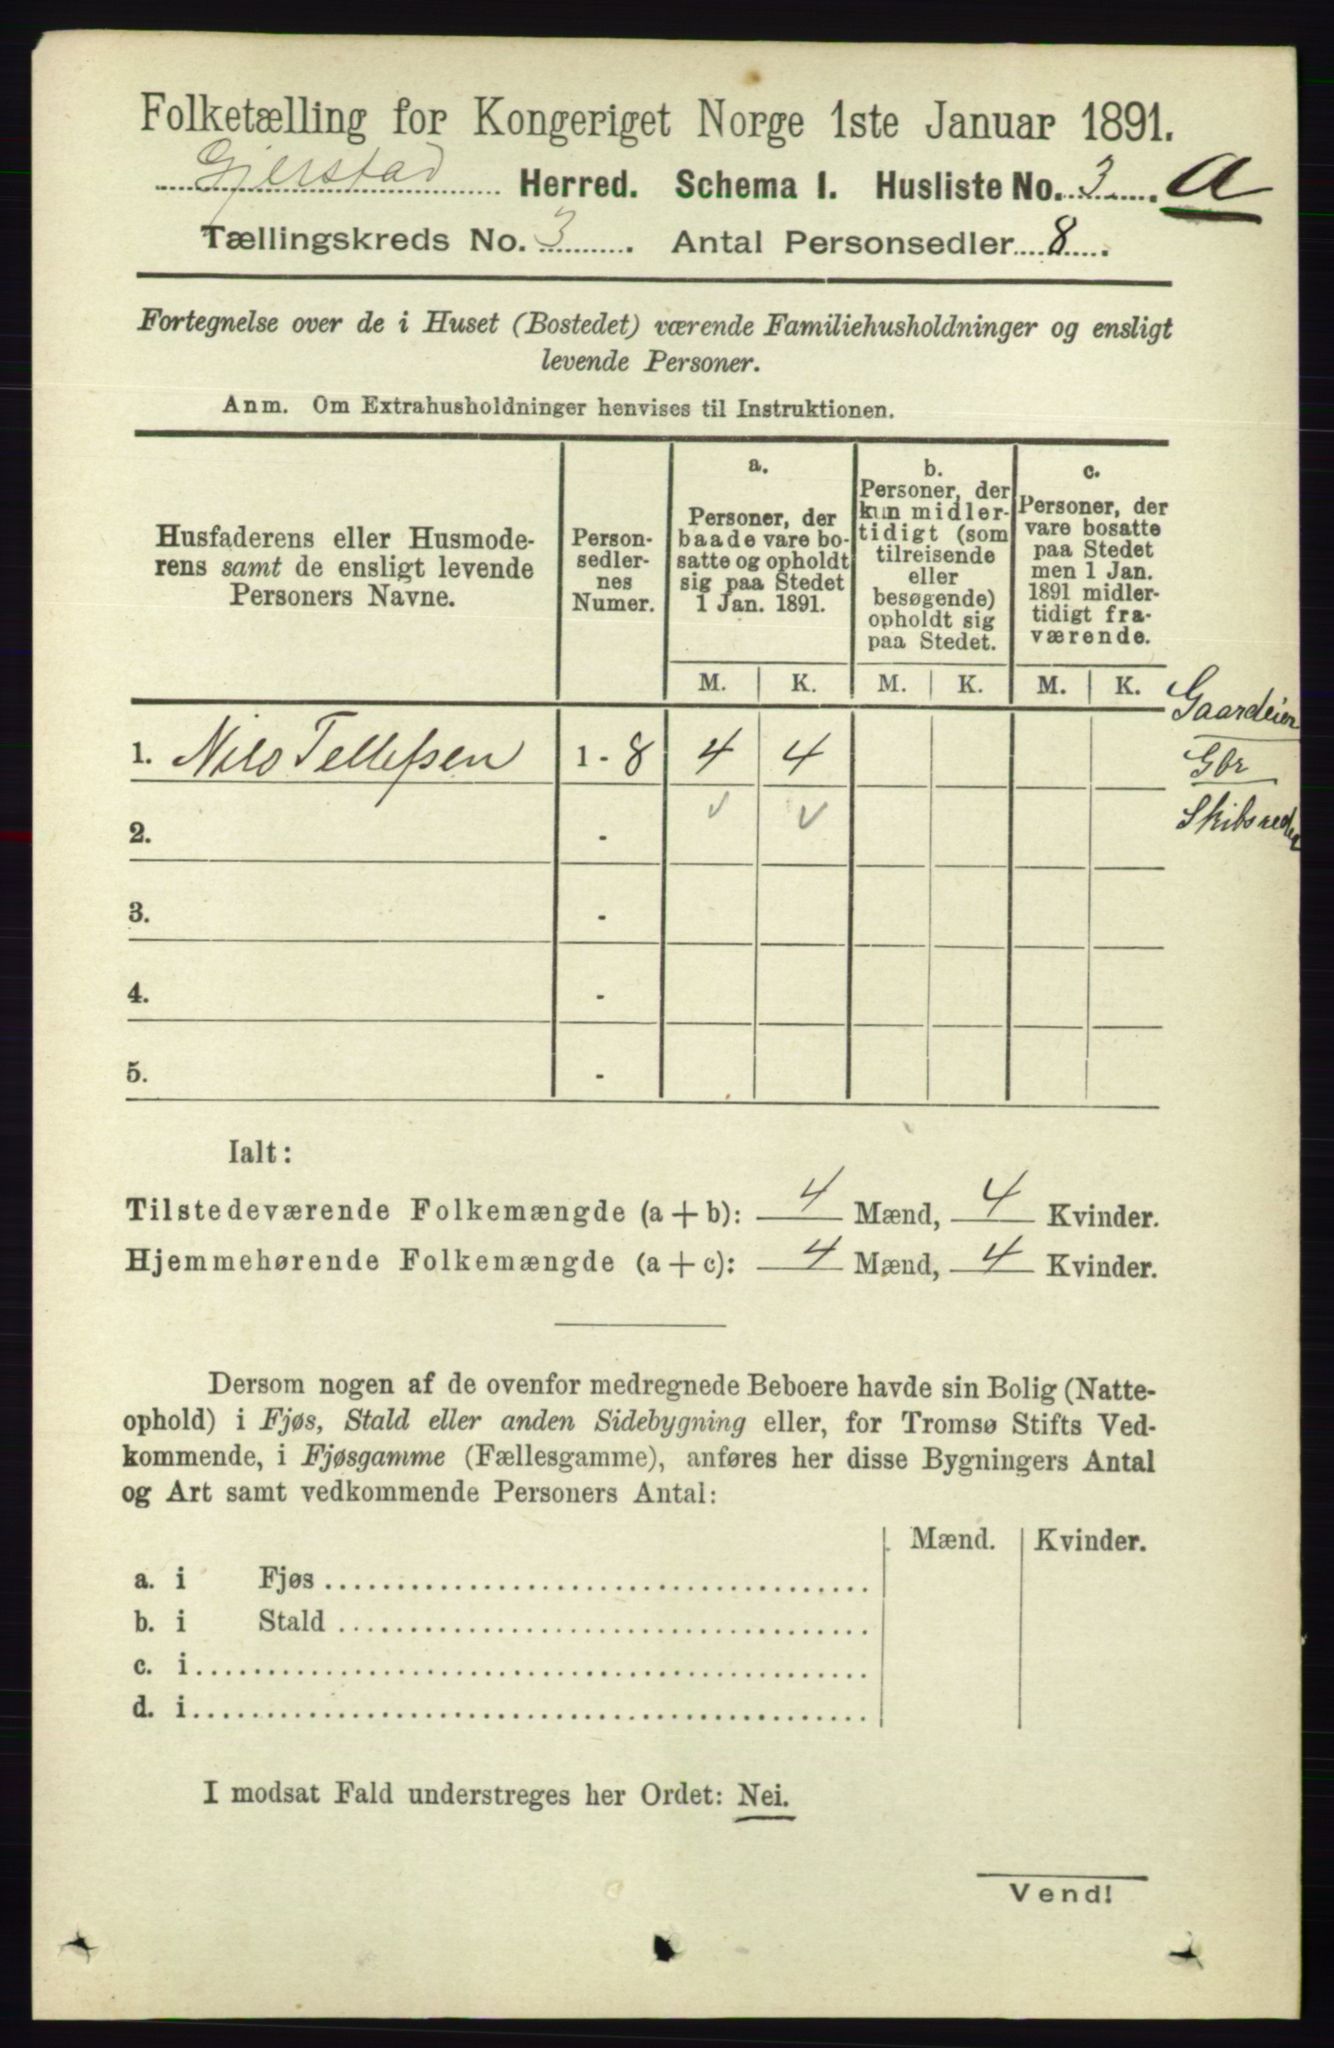 Folketælling for Kongeriget Norge 1ste Januar 1891.
Gjerstad Herred. Schema I. Husliste No. 3. A
Tællingskreds No. 3. Antal Personsedler 8.
Fortegnelse over de i Huset (Bostedet) værende Familiehusholdninger og ensligt
levende Personer.
Anm. Om Extrahusholdninger henvises til Instruktionen.
Husfaderens eller Husmode-
rens samt de ensligt levende
Personers Navne.
Person-
sedler-
nes
Numer.
a.
Personer, der
baade vare bo-
satte og opholdt
sig paa Stedet
1 Jan. 1891.
b.
Personer, der
kun midler-
tidigt (som
tilreisende
eller
besøgende)
opholdt sig
paa Stedet.
c.
Personer, der
vare bosatte
paa Stedet
men 1 Jan.
1891 midler-
tidigt fra-
værende.
M. K. M. K. M. K.
Gaardeier
1. Nils Tellefsen 1 - 8 4 4
Gbr
Skibsreder
2. -
3. -
4. -
5. -
Ialt:
Tilstedeværende Folkemængde (a + b): 4 Mænd, 4 Kvinder.
Hjemmehørende Folkemængde (a + c): 4 Mænd, 4 Kvinder.
Dersom nogen af de ovenfor medregnede Beboere havde sin Bolig (Natte-
ophold) i Fjøs, Stald eller anden Sidebygning eller, for Tromsø Stifts Ved-
kommende, i Fjøsgamme (Fællesgamme), anføres her disse Bygningers Antal
og Art samt vedkommende Personers Antal:
Mænd. Kvinder.
a. i Fjøs
b. i Stald
c. i
d. i
I modsat Fald understreges her Ordet: Nei.
Vend!